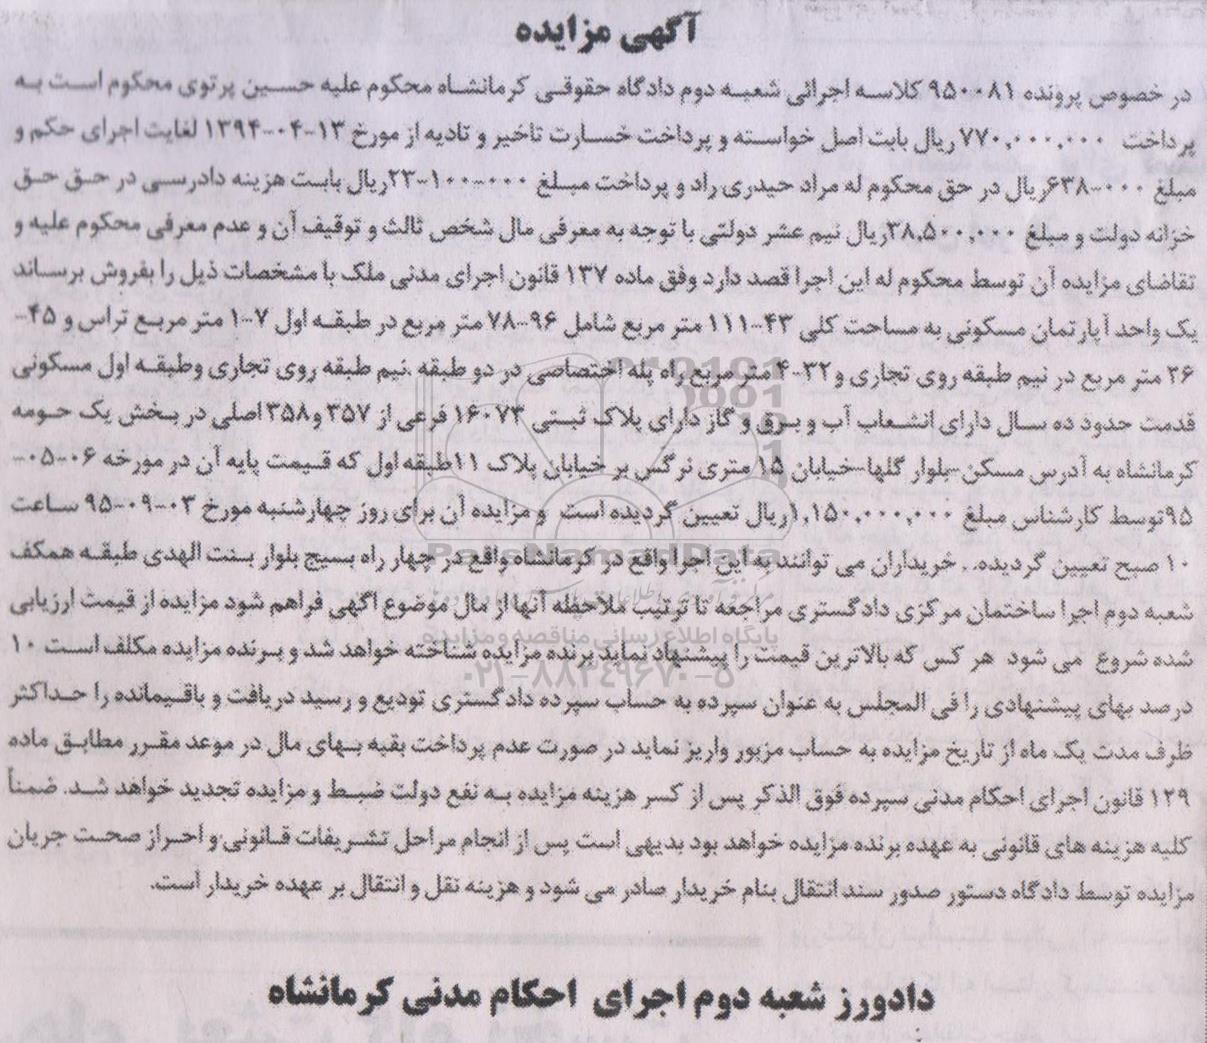 آگهی مزایده
در خصوص پرونده ۹۵۰۰۸۱ کلاسه اجرائی شعبه دوم دادگاه حقوقی کرمانشاه محکوم علیه حسین پرتوی محکوم است به
پرداخت ۷۷۰,۰۰۰,۰۰۰ ریال بابت اصل خواسته و پرداخت خسارت تاخیر و تادیه از مورخ ۱۳-۰۴-۱۳۹۴ لغایت اجرای حکم و
مبلغ ۰۰۰-۶۳۸ریال در حق محکوم له مراد حیدری راد و پرداخت مبلغ ۰۰۰-۱۰۰-۲۳ریال بابت هزینه دادرسی در حق حق
خزانه دولت و مبلغ ۳۸,۵۰۰,۰۰۰ریال نیم عشر دولتی با توجه به معرفی مال شخص ثالث و توقیف آن و عدم معرفی محکوم علیه و
تقاضای مزایده آن توسط محکوم له این اجرا قصد دارد وفق ماده ۱۳۷ قانون اجرای مدنی ملک با مشخصات ذیل را بفروش برساند
یک واحد آپارتمان مسکونی به مساحت کلی ۴۳-۱۱۱ متر مربع شامل ۹۶-۷۸ متر مربع در طبقه اول ۷-۱ متر مربع تراس و ۴۵-
۲۶ متر مربع در نیم طبقه روی تجاری و۳۲-۴ متر مربع راه پله اختصاصی در دو طبقه .نیم طبقه روی تجاری وطبقه اول مسکونی
قدمت حدود ده سال دارای انشعاب آب و برق و گاز دارای پلاک ثبتی ۱۶۰۷۳ فرعی از ۳۵۷ و۳۵۸ اصلی در بخش یک حومه
کرمانشاه به آدرس مسکن-بلوار گلها-خیابان ۱۵ متری نرگس بر خیابان پلاک ۱۱طبقه اول که قیمت پایه آن در مورخه ۰۶-۰۵-
۹۵توسط کارشناس مبلغ ۱,۱۵۰,۰۰۰,۰۰۰ریال تعیین گردیده است و مزایده آن برای روز چهارشنبه مورخ ۰۳-۰۹-۹۵ ساعت
۱۰ صبح تعیین گردیده. . خریداران می توانند به این اجرا واقع در کرمانشاه واقع در چهار راه بسیج بلوار بنت الهدی طبقه همکف
شعبه دوم اجرا ساختمان مرکزی دادگستری مراجعه تا ترتیب ملاحظه آنها از مال موضوع اگهی فراهم شود مزایده از قیمت ارزیابی
شده شروع می شود هر کس که بالاترین قیمت را پیشنهاد نماید برنده مزایده شناخته خواهد شد و برنده مزایده مکلف است ۱۰
درصد بهای پیشنهادی را فی المجلس به عنوان سپرده به حساب سپرده دادگستری تودیع و رسید دریافت و باقیمانده را حداکثر
ظرف مدت یک ماه از تاریخ مزایده به حساب مزبور واریز نماید در صورت عدم پرداخت بقیه بهای مال در موعد مقرر مطابق ماده
۱۲۹ قانون اجرای احکام مدنی سپرده فوق الذکر پس از کسر هزینه مزایده به نفع دولت ضبط و مزایده تجدید خواهد شد. ضمناً
کلیه هزینه های قانونی به عهده برنده مزایده خواهد بود بدیهی است پس از انجام مراحل تشریفات قانونی و احراز صحت جریان
مزایده توسط دادگاه دستور صدور سند انتقال بنام خریدار صادر می شود و هزینه نقل و انتقال بر عهده خریدار است.
دادورز شعبه دوم اجرای احکام مدنی کرمانشاه
ParsNamadData
پایگاه اطلاع رسانی مناقصه و مزایده
۰۲۱-۸۸۳۴۹۶۷۰-۵